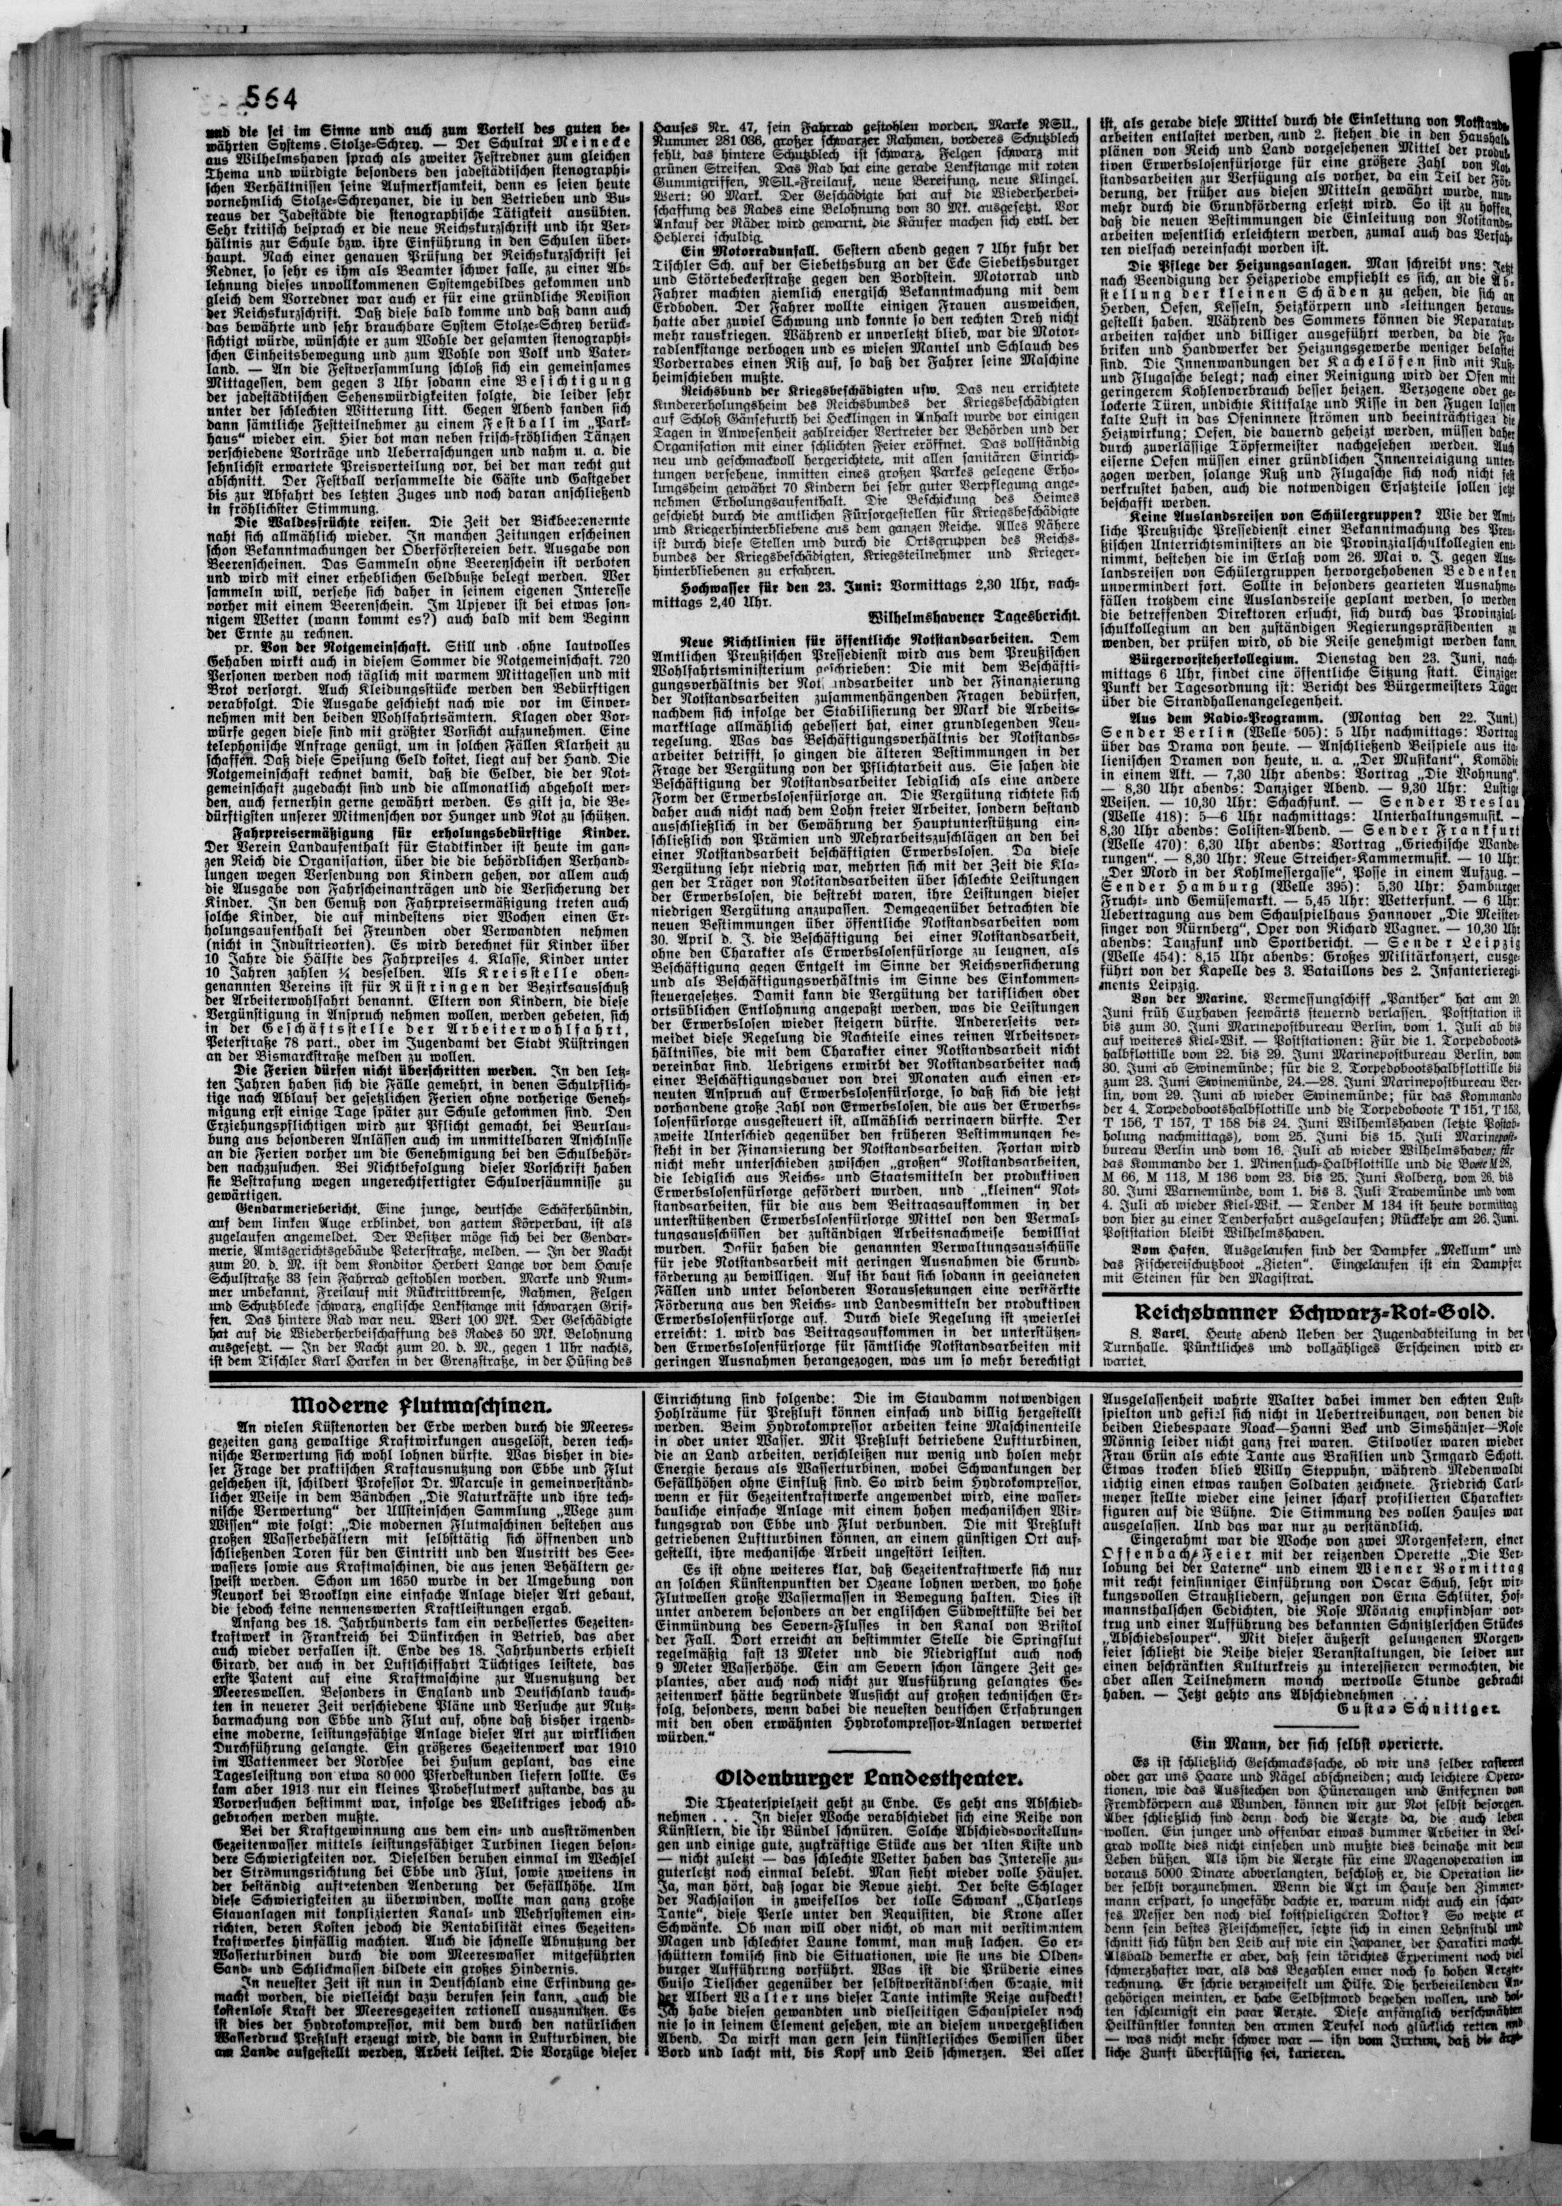 564
und die sei im Sinne und auch zum Vorteil des guten be-
währten Systems Stolze-Schrey. — Der Schulrat Meinecke
aus Wilhelmshaven sprach als zweiter Festredner zum gleichen
Thema und würdigte besonders den jadestädtischen stenographi-
schen Verhältnissen seine Aufmerksamkeit, denn es seien heute
vornehmlich Stolze-Schreyaner, die in den Betrieben und Bu-
reaus der Jadestädte die stenographische Tätigkeit ausübten.
Sehr kritisch besprach er die neue Reichskurzschrift und ihr Ver-
hältnis zur Schule bzw. ihre Einführung in den Schulen über-
haupt. Nach einer genauen Prüfung der Reichskurzschrift sei
Redner, so sehr es ihm als Beamter schwer falle, zu einer Ab-
lehnung dieses unvollkommenen Systemgebildes gekommen und
gleich dem Vorredner war auch er für eine gründliche Revision
der Reichskurzschrift. Daß diese bald komme und daß dann auch
das bewährte und sehr brauchbare System Stolze-Schrey berück-
sichtigt würde, wünschte er zum Wohle der gesamten stenographi-
schen Einheitsbewegung und zum Wohle von Volk und Vater-
land. — An die Festversammlung schloß sich ein gemeinsames
Mittagessen, dem gegen 3 Uhr sodann eine Besichtigung
der jadestädtischen Sehenswürdigkeiten folgte, die leider sehr
unter der schlechten Witterung litt. Gegen Abend fanden sich
dann sämtliche Festteilnehmer zu einem Festball im „Park-
haus“ wieder ein. Hier bot man neben frisch-fröhlichen Tänzen
verschiedene Vorträge und Ueberraschungen und nahm u. a. die
sehnlichst erwartete Preisverteilung vor, bei der man recht gut
abschnitt. Der Festball versammelte die Gäste und Gastgeber
bis zur Abfahrt des letzten Zuges und noch daran anschließend
in fröhlichster Stimmung.
Die Waldesfrüchte reifen. Die Zeit der Bickbeerenernte
naht sich allmählich wieder. In manchen Zeitungen erscheinen
schon Bekanntmachungen der Oberförstereien betr. Ausgabe von
Beerenscheinen. Das Sammeln ohne Beerenschein ist verboten
und wird mit einer erheblichen Geldbuße belegt werden. Wer
sammeln will, versehe sich daher in seinem eigenen Interesse
vorher mit einem Beerenschein. Im Upjever ist bei etwas son-
nigem Wetter (wann kommt es?) auch bald mit dem Beginn
der Ernte zu rechnen.
pr. Von der Notgemeinschaft. Still und ohne lautvolles
Gehaben wirkt auch in diesem Sommer die Notgemeinschaft. 720
Personen werden noch täglich mit warmem Mittagessen und mit
Brot versorgt. Auch Kleidungsstücke werden den Bedürftigen
verabfolgt. Die Ausgabe geschieht nach wie vor im Einver-
nehmen mit den beiden Wohlfahrtsämtern. Klagen oder Vor-
würfe gegen diese sind mit größter Vorsicht aufzunehmen. Eine
telephonische Anfrage genügt, um in solchen Fällen Klarheit zu
schaffen. Daß diese Speisung Geld kostet, liegt auf der Hand. Die
Notgemeinschaft rechnet damit, daß die Gelder, die der Not-
gemeinschaft zugedacht sind und die allmonatlich abgeholt wer-
den, auch fernerhin gerne gewährt werden. Es gilt ja, die Be-
dürftigsten unserer Mitmenschen vor Hunger und Not zu schützen.
Fahrpreisermäßigung für erholungsbedürftige Kinder.
Der Verein Landaufenthalt für Stadtkinder ist heute im gan-
zen Reich die Organisation, über die die behördlichen Verhand-
lungen wegen Versendung von Kindern gehen, vor allem auch
die Ausgabe von Fahrscheinanträgen und die Versicherung der
Kinder. In den Genuß von Fahrpreisermäßigung treten auch
solche Kinder, die auf mindestens vier Wochen einen Er-
holungsaufenthalt bei Freunden oder Verwandten nehmen
(nicht in Industrieorten). Es wird berechnet für Kinder über
10 Jahre die Hälfte des Fahrpreises 4. Klasse, Kinder unter
10 Jahren zahlen ¼ desselben. Als Kreisstelle oben-
genannten Vereins ist für Rüstringen der Bezirksausschuß
der Arbeiterwohlfahrt benannt. Eltern von Kindern, die diese
Vergünstigung in Anspruch nehmen wollen, werden gebeten, sich
in der Geschäftsstelle der Arbeiterwohlfahrt,
Peterstraße 78 part., oder im Jugendamt der Stadt Rüstringen
an der Bismarckstraße melden zu wollen.
Die Ferien dürfen nicht überschritten werden. In den letz-
ten Jahren haben sich die Fälle gemehrt, in denen Schulpflich-
tige nach Ablauf der gesetzlichen Ferien ohne vorherige Geneh-
migung erst einige Tage später zur Schule gekommen sind. Den
Erziehungspflichtigen wird zur Pflicht gemacht, bei Beurlau-
bung aus besonderen Anlässen auch im unmittelbaren Anschlusse
an die Ferien vorher um die Genehmigung bei den Schulbehör-
den nachzusuchen. Bei Nichtbefolgung dieser Vorschrift haben
sie Bestrafung wegen ungerechtfertigter Schulversäumnisse zu
gewärtigen.
Gendarmeriebericht. Eine junge, deutsche Schäferhündin,
auf dem linken Auge erblindet, von zartem Körperbau, ist als
zugelaufen angemeldet. Der Besitzer möge sich bei der Gendar-
merie, Amtsgerichtsgebäude Peterstraße, melden. — In der Nacht
zum 20. d. M. ist dem Konditor Herbert Lange vor dem Hause
Schulstraße 33 sein Fahrrad gestohlen worden. Marke und Num-
mer unbekannt, Freilauf mit Rücktrittbremse, Rahmen, Felgen
und Schutzblecke schwarz, englische Lenkstange mit schwarzen Grif-
fen. Das hintere Rad war neu. Wert 100 Mk. Der Geschädigte
hat auf die Wiederherbeischaffung des Rades 50 Mk. Belohnung
ausgesetzt. — In der Nacht zum 20. d. M., gegen 1 Uhr nachts,
ist dem Tischler Karl Harken in der Grenzstraße, in der Hüsing des
Hauses Nr. 47, sein Fahrrad gestohlen worden. Marke NSU.,
Nummer 281 036, großer schwarzer Rahmen, vorderes Schutzblech
fehlt, das hintere Schutzblech ist schwarz, Felgen schwarz mit
grünen Streifen. Das Rad hat eine gerade Lenkstange mit roten
Gummigriffen, NSU.-Freilauf, neue Bereifung, neue Klingel.
Wert: 90 Mark. Der Geschädigte hat auf die Wiederherbei-
schaffung des Rades eine Belohnung von 30 Mk. ausgesetzt. Vor
Ankauf der Räder wird gewarnt, die Käufer machen sich evtl. der
Hehlerei schuldig.
Ein Motorradunfall. Gestern abend gegen 7 Uhr fuhr der
Tischler Sch. auf der Siebethsburg an der Ecke Siebethsburger
und Störtebeckerstraße gegen den Bordstein. Motorrad und
Fahrer machten ziemlich energisch Bekanntmachung mit dem
Erdboden. Der Fahrer wollte einigen Frauen ausweichen,
hatte aber zuviel Schwung und konnte so den rechten Dreh nicht
mehr rauskriegen. Während er unverletzt blieb, war die Motor-
radlenkstange verbogen und es wiesen Mantel und Schlauch des
Vorderrades einen Riß auf, so daß der Fahrer seine Maschine
heimschieben mußte.
Reichsbund der Kriegsbeschädigten usw. Das neu errichtete
Kindererholungsheim des Reichsbundes der Kriegsbeschädigten
auf Schloß Gänsefurth bei Hecklingen in Anhalt wurde vor einigen
Tagen in Anwesenheit zahlreicher Vertreter der Behörden und der
Organisation mit einer schlichten Feier eröffnet. Das vollständig
neu und geschmackvoll hergerichtete, mit allen sanitären Einrich-
tungen versehene, inmitten eines großen Parkes gelegene Erho-
lungsheim gewährt 70 Kindern bei sehr guter Verpflegung ange-
nehmen Erholungsaufenthalt. Die Beschickung des Heimes
geschieht durch die amtlichen Fürsorgestellen für Kriegsbeschädigte
und Kriegerhinterbliebene aus dem ganzen Reiche. Alles Nähere
ist durch diese Stellen und durch die Ortsgruppen des Reichs-
bundes der Kriegsbeschädigten, Kriegsteilnehmer und Krieger-
hinterbliebenen zu erfahren.
Hochwasser für den 23. Juni: Vormittags 2,30 Uhr, nach-
mittags 2,40 Uhr.
Wilhelmshavener Tagesbericht.
Neue Richtlinien für öffentliche Notstandsarbeiten. Dem
Amtlichen Preußischen Pressedienst wird aus dem Preußischen
Wohlfahrtsministerium geschrieben: Die mit dem Beschäfti-
gungsverhältnis der Notstandsarbeiter und der Finanzierung
der Notstandsarbeiten zusammenhängenden Fragen bedürfen,
nachdem sich infolge der Stabilisierung der Mark die Arbeits-
marktlage allmählich gebessert hat, einer grundlegenden Neu-
regelung. Was das Beschäftigungsverhältnis der Notstands-
arbeiter betrifft, so gingen die älteren Bestimmungen in der
Frage der Vergütung von der Pflichtarbeit aus. Sie sahen die
Beschäftigung der Notstandsarbeiter lediglich als eine andere
Form der Erwerbslosenfürsorge an. Die Vergütung richtete sich
daher auch nicht nach dem Lohn freier Arbeiter, sondern bestand
ausschließlich in der Gewährung der Hauptunterstützung ein-
schließlich von Prämien und Mehrarbeitszuschlägen an den bei
einer Notstandsarbeit beschäftigten Erwerbslosen. Da diese
Vergütung sehr niedrig war, mehrten sich mit der Zeit die Kla-
gen der Träger von Notstandsarbeiten über schlechte Leistungen
der Erwerbslosen, die bestrebt waren, ihre Leistungen dieser
niedrigen Vergütung anzupassen. Demgegenüber betrachten die
neuen Bestimmungen über öffentliche Notstandsarbeiten vom
30. April d. J. die Beschäftigung bei einer Notstandsarbeit,
ohne den Charakter als Erwerbslosenfürsorge zu leugnen, als
Beschäftigung gegen Entgelt im Sinne der Reichsversicherung
und als Beschäftigungsverhältnis im Sinne des Einkommen-
steuergesetzes. Damit kann die Vergütung der tariflichen oder
ortsüblichen Entlohnung angepaßt werden, was die Leistungen
der Erwerbslosen wieder steigern dürfte. Andererseits ver-
meidet diese Regelung die Nachteile eines reinen Arbeitsver-
hältnisses, die mit dem Charakter einer Notstandsarbeit nicht
vereinbar sind. Uebrigens erwirbt der Notstandsarbeiter nach
einer Beschäftigungsdauer von drei Monaten auch einen er-
neuten Anspruch auf Erwerbslosenfürsorge, so daß sich die jetzt
vorhandene große Zahl von Erwerbslosen, die aus der Erwerbs-
losenfürsorge ausgesteuert ist, allmählich verringern dürfte. Der
zweite Unterschied gegenüber den früheren Bestimmungen be-
steht in der Finanzierung der Notstandsarbeiten. Fortan wird
nicht mehr unterschieden zwischen „großen“ Notstandsarbeiten,
die lediglich aus Reichs- und Staatsmitteln der produktiven
Erwerbslosenfürsorge gefördert wurden, und „kleinen“ Not-
standsarbeiten, für die aus dem Beitragsaufkommen in der
unterstützenden Erwerbslosenfürsorge Mittel von den Verwal-
tungsausschüssen der zuständigen Arbeitsnachweise bewilligt
wurden. Dafür haben die genannten Verwaltungsausschüsse
für jede Notstandsarbeit mit geringen Ausnahmen die Grund-
förderung zu bewilligen. Auf ihr baut sich sodann in geeigneten
Fällen und unter besonderen Voraussetzungen eine verstärkte
Förderung aus den Reichs- und Landesmitteln der produktiven
Erwerbslosenfürsorge auf. Durch diele Regelung ist zweierlei
erreicht: 1. wird das Beitragsaufkommen in der unterstützen-
den Erwerbslosenfürsorge für sämtliche Notstandsarbeiten mit
geringen Ausnahmen herangezogen, was um so mehr berechtigt
ist, als gerade diese Mittel durch die Einleitung von Notstands-
arbeiten entlastet werden, und 2. stehen die in den Haushalt-
plänen von Reich und Land vorgesehenen Mittel der produk-
tiven Erwerbslosenfürsorge für eine größere Zahl von Not-
standsarbeiten zur Verfügung als vorher, da ein Teil der För-
derung, der früher aus diesen Mitteln gewährt wurde, nun-
mehr durch die Grundförderng ersetzt wird. So ist zu hoffen,
daß die neuen Bestimmungen die Einleitung von Notstands-
arbeiten wesentlich erleichtern werden, zumal auch das Verfah-
ren vielfach vereinfacht worden ist.
Die Pflege der Heizungsanlagen. Man schreibt uns: Jetzt
nach Beendigung der Heizperiode empfiehlt es sich, an die Ab-
stellung der kleinen Schäden zu gehen, die sich an
Herden, Oefen, Kesseln, Heizkörpern und -leitungen heraus-
gestellt haben. Während des Sommers können die Reparatur-
arbeiten rascher und billiger ausgeführt werden, da die Fa-
briken und Handwerker der Heizungsgewerbe weniger belastet
sind. Die Innenwandungen der Kachelöfen sind mit Ruß-
und Flugasche belegt; nach einer Reinigung wird der Ofen mit
geringerem Kohlenverbrauch besser heizen. Verzogene oder ge-
lockerte Türen, undichte Kittfalze und Risse in den Fugen lassen
kalte Luft in das Ofeninnere strömen und beeinträchtigen die
Heizwirkung; Oefen, die dauernd geheizt werden, müssen daher
durch zuverlässige Töpfermeister nachgesehen werden. Auch
eiserne Oefen müssen einer gründlichen Innenreinigung unter-
zogen werden, solange Ruß und Flugasche sich noch nicht fest
verkrustet haben, auch die notwendigen Ersatzteile sollen jetzt
beschafft werden.
Keine Auslandsreisen von Schülergruppen? Wie der Amt-
liche Preußische Pressedienst einer Bekanntmachung des Preu-
ßischen Unterrichtsministers an die Provinzialschulkollegien ent-
nimmt, bestehen die im Erlaß vom 26. Mai v. J. gegen Aus-
landsreisen von Schülergruppen hervorgehobenen Bedenken
unvermindert fort. Sollte in besonders gearteten Ausnahme-
fällen trotzdem eine Auslandsreise geplant werden, so werden
die betreffenden Direktoren ersucht, sich durch das Provinzial-
schulkollegium an den zuständigen Regierungspräsidenten zu
wenden, der prüfen wird, ob die Reise genehmigt werden kann.
Bürgervorsteherkollegium. Dienstag den 23. Juni, nach-
mittags 6 Uhr, findet eine öffentliche Sitzung statt. Einziger
Punkt der Tagesordnung ist: Bericht des Bürgermeisters Täger
über die Strandhallenangelegenheit.
Aus dem Radio-Programm. (Montag den 22. Juni.)
Sender Berlin (Welle 505): 5 Uhr nachmittags: Vortrag
über das Drama von heute. — Anschließend Beispiele aus ita-
lienischen Dramen von heute, u. a. „Der Musikant“, Komödie
in einem Akt. — 7,30 Uhr abends: Vortrag „Die Wohnung“.
— 8,30 Uhr abends: Danziger Abend. — 9,30 Uhr: Lustige
Weisen. — 10,30 Uhr: Schachfunk. — Sender Breslau
(Welle 418): 5—6 Uhr nachmittags: Unterhaltungsmusik. —
8,30 Uhr abends: Solisten-Abend. — Sender Frankfurt
(Welle 470): 6,30 Uhr abends: Vortrag „Griechische Wande-
rungen“. — 8,30 Uhr: Neue Streicher-Kammermusik. — 10 Uhr:
„Der Mord in der Kohlmessergasse“, Posse in einem Aufzug. —
Sender Hamburg (Welle 395): 5,30 Uhr: Hamburger
Frucht- und Gemüsemarkt. — 5,45 Uhr: Wetterfunk. — 6 Uhr:
Uebertragung aus dem Schauspielhaus Hannover „Die Meister-
singer von Nürnberg“, Oper von Richard Wagner. — 10,30 Uhr
abends: Tanzfunk und Sportbericht. — Sender Leipzig
(Welle 454): 8,15 Uhr abends: Großes Militärkonzert, ausge-
führt von der Kapelle des 3. Bataillons des 2. Infanterieregi-
ments Leipzig.
Von der Marine. Vermessungschiff „Panther“ hat am 20.
Juni früh Cuxhaven seewärts steuernd verlassen. Poststation ist
bis zum 30. Juni Marinepostbureau Berlin, vom 1. Juli ab bis
auf weiteres Kiel-Wik. — Poststationen: Für die 1. Torpedoboots-
halbflottille vom 22. bis 29. Juni Marinepostbureau Berlin, vom
30. Juni ab Swinemünde; für die 2. Torpedobootshalbflottille bis
zum 23. Juni Swinemünde, 24.—28. Juni Marinepostbureau Ber-
lin, vom 29. Juni ab wieder Swinemünde; für das Kommando
der 4. Torpedobootshalbflottille und die Torpedoboote T 151, T 153,
T 156, T 157, T 158 bis 24. Juni Wilhemlshaven (letzte Postab-
holung nachmittags), vom 25. Juni bis 15. Juli Marinepost-
bureau Berlin und vom 16. Juli ab wieder Wilhelmshaven; für
das Kommando der 1. Minensuch-Halbflottille und die Boote M 28,
M 66, M 113, M 136 vom 23. bis 25. Juni Kolberg, vom 26. bis
30. Juni Warnemünde, vom 1. bis 3. Juli Travemünde und vom
4. Juli ab wieder Kiel-Wik. — Tender M 134 ist heute vormittag
von hier zu einer Tenderfahrt ausgelaufen; Rückkehr am 26. Juni.
Poststation bleibt Wilhelmshaven.
Vom Hafen. Ausgelaufen sind der Dampfer „Mellum“ und
das Fischereischutzboot „Zieten“. Eingelaufen ist ein Dampfer
mit Steinen für den Magistrat.
Reichsbanner Schwarz-Rot-Gold.
S. Varel. Heute abend Ueben der Jugendabteilung in der
Turnhalle. Pünktliches und vollzähliges Erscheinen wird er-
wartet.
Moderne Flutmaschinen.
An vielen Küstenorten der Erde werden durch die Meeres-
gezeiten ganz gewaltige Kraftwirkungen ausgelöst, deren tech-
nische Verwertung sich wohl lohnen dürfte. Was bisher in die-
ser Frage der praktischen Kraftausnutzung von Ebbe und Flut
geschehen ist, schildert Professor Dr. Marcuse in gemeinverständ-
licher Weise in dem Bändchen „Die Naturkräfte und ihre tech-
nische Verwertung“ der Ullsteinschen Sammlung „Wege zum
Wissen“ wie folgt: „Die modernen Flutmaschinen bestehen aus
großen Wasserbehältern mit selbsttätig sich öffnenden und
schließenden Toren für den Eintritt und den Austritt des See-
wassers sowie aus Kraftmaschinen, die aus jenen Behältern ge-
speist werden. Schon um 1650 wurde in der Umgebung von
Neuyork bei Brooklyn eine einfache Anlage dieser Art gebaut,
die jedoch keine nennenswerten Kraftleistungen ergab.
Anfang des 18. Jahrhunderts kam ein verbessertes Gezeiten-
kraftwerk in Frankreich bei Dünkirchen in Betrieb, das aber
auch wieder verfallen ist. Ende des 18. Jahrhunderts erhielt
Girard, der auch in der Luftschiffahrt Tüchtiges leistete, das
erste Patent auf eine Kraftmaschine zur Ausnutzung der
Meereswellen. Besonders in England und Deutschland tauch-
ten in neuerer Zeit verschiedene Pläne und Versuche zur Nutz-
barmachung von Ebbe und Flut auf, ohne daß bisher irgend-
eine moderne, leistungsfähige Anlage dieser Art zur wirklichen
Durchführung gelangte. Ein größeres Gezeitenwerk war 1910
im Wattenmeer der Nordsee bei Husum geplant, das eine
Tagesleistung von etwa 80 000 Pferdestunden liefern sollte. Es
kam aber 1913 nur ein kleines Probeflutwerk zustande, das zu
Vorversuchen bestimmt war, infolge des Weltkriges jedoch ab-
gebrochen werden mußte.
Bei der Kraftgewinnung aus dem ein- und ausströmenden
Gezeitenwasser mittels leistungsfähiger Turbinen liegen beson-
dere Schwierigkeiten vor. Dieselben beruhen einmal im Wechsel
der Strömungsrichtung bei Ebbe und Flut, sowie zweitens in
der beständig auftretenden Aenderung der Gefällhöhe. Um
diese Schwierigkeiten zu überwinden, wollte man ganz große
Stauanlagen mit konplizierten Kanal- und Wehrsystemen ein-
richten, deren Kosten jedoch die Rentabilität eines Gezeiten-
kraftwerkes hinfällig machten. Auch die schnelle Abnutzung der
Wasserturbinen durch die vom Meereswasser mitgeführten
Sand- und Schlickmassen bildete ein großes Hindernis.
In neuester Zeit ist nun in Deutschland eine Erfindung ge-
macht worden, die vielleicht dazu berufen sein kann, auch die
kostenlose Kraft der Meeresgezeiten rationell auszunutzen. Es
ist dies der Hydrokompressor, mit dem durch den natürlichen
Wasserdruck Preßluft erzeugt wird, die dann in Lufturbinen, die
am Lande aufgestellt werden, Arbeit leistet. Die Vorzüge dieser
Einrichtung sind folgende: Die im Staudamm notwendigen
Hohlräume für Preßluft können einfach und billig hergestellt
werden. Beim Hydrokompressor arbeiten keine Maschinenteile
in oder unter Wasser. Mit Preßluft betriebene Luftturbinen,
die an Land arbeiten, verschleißen nur wenig und holen mehr
Energie heraus als Wasserturbinen, wobei Schwankungen der
Gefällhöhen ohne Einfluß sind. So wird beim Hydrokompressor,
wenn er für Gezeitenkraftwerke angewendet wird, eine wasser-
bauliche einfache Anlage mit einem hohen mechanischen Wir-
kungsgrad von Ebbe und Flut verbunden. Die mit Preßluft
getriebenen Luftturbinen können, an einem günstigen Ort auf-
gestellt, ihre mechanische Arbeit ungestört leisten.
Es ist ohne weiteres klar, daß Gezeitenkraftwerke sich nur
an solchen Künstenpunkten der Ozeane lohnen werden, wo hohe
Flutwellen große Wassermassen in Bewegung halten. Dies ist
unter anderem besonders an der englischen Südwestküste bei der
Einmündung des Severn-Flusses in den Kanal von Bristol
der Fall. Dort erreicht an bestimmter Stelle die Springflut
regelmäßig fast 13 Meter und die Niedrigflut auch noch
9 Meter Wasserhöhe. Ein am Severn schon längere Zeit ge-
plantes, aber auch noch nicht zur Ausführung gelangtes Ge-
zeitenwerk hätte begründete Aussicht auf großen technischen Er-
folg, besonders, wenn dabei die neuesten deutschen Erfahrungen
mit den oben erwähnten Hydrokompressor-Anlagen verwertet
würden.“
Oldenburger Landestheater.
Die Theaterspielzeit geht zu Ende. Es geht ans Abschied-
nehmen . . . In dieser Woche verabschiedet sich eine Reihe von
Künstlern, die ihr Bündel schnüren. Solche Abschiedsvorstellun-
gen und einige gute, zugkräftige Stücke aus der alten Kiste und
— nicht zuletzt — das schlechte Wetter haben das Interesse zu-
guterletzt noch einmal belebt. Man sieht wieder volle Häuser.
Ja, man hört, daß sogar die Revue zieht. Der beste Schlager
der Nachsaison in zweifellos der tolle Schwank „Charleys
Tante“, diese Perle unter den Requisiten, die Krone aller
Schwänke. Ob man will oder nicht, ob man mit verstimmtem
Magen und schlechter Laune kommt, man muß lachen. So er-
schüttern komisch sind die Situationen, wie sie uns die Olden-
burger Aufführung vorführt. Was ist die Prüderie eines
Guiso Tielscher gegenüber der selbstverständlichen Grazie, mit
der Albert Walter uns dieser Tante intimste Reize aufdeckt!
Ich habe diesen gewandten und vielseitigen Schauspieler noch
nie so in seinem Element gesehen, wie an diesem unvergeßlichen
Abend. Da wirft man gern sein künstlerisches Gewissen über
Bord und lacht mit, bis Kopf und Leib schmerzen. Bei aller
Ausgelassenheit wahrte Walter dabei immer den echten Lust-
spielton und gefiel sich nicht in Uebertreibungen, von denen die
beiden Liebespaare Noack—Hanni Beck und Simshäuser—Rose
Mönnig leider nicht ganz frei waren. Stilvoller waren wieder
Frau Grün als echte Tante aus Brasilien und Irmgard Schott.
Etwas trocken blieb Willy Steppuhn, während Medenwaldt
richtig einen etwas rauhen Soldaten zeichnete. Friedrich Carl-
meyer stellte wieder eine seiner scharf profilierten Charakter-
figuren auf die Bühne. Die Stimmung des vollen Hauses war
ausgelassen. Und das war nur zu verständlich.
Eingerahmt war die Woche von zwei Morgenfeiern, einer
Offenbach-Feier mit der reizenden Operette „Die Ver-
lobung bei der Laterne“ und einem Wiener Vormittag
mit recht feinsinniger Einführung von Oscar Schuh, sehr wir-
kungsvollen Straußliedern, gesungen von Erna Schlüter, Hof-
mannsthalschen Gedichten, die Rose Mönnig empfindsam vor-
trug und einer Aufführung des bekannten Schnitzlerschen Stückes
„Abschiedssouper“. Mit dieser äußerst gelungenen Morgen-
feier schließt die Reihe dieser Veranstaltungen, die leider nur
einen beschränkten Kulturkreis zu interessieren vermochten, die
aber allen Teilnehmern manch wertvolle Stunde gebracht
haben. — Jetzt gehts ans Abschiednehmen . . .
Gustav Schnittger.
Ein Mann, der sich selbst operierte.
Es ist schließlich Geschmackssache, ob wir uns selber rasieren
oder gar uns Haare und Nägel abschneiden; auch leichtere Opera-
tionen, wie das Ausstechen von Hüneraugen und Entfernen von
Fremdkörpern aus Wunden, können wir zur Not selbst besorgen.
Aber schließlich sind denn doch die Aerzte da, die auch leben
wollen. Ein junger und offenbar etwas dummer Arbeiter in Bel-
grad wollte dies nicht einsehen und mußte dies beinahe mit dem
Leben büßen. Als ihm die Aerzte für eine Magenoperation im
voraus 5000 Dinare abverlangten, beschloß er, die Operation lie-
ber selbst vorzunehmen. Wenn die Axt im Hause den Zimmer-
mann erspart, so ungefähr dachte er, warum nicht auch ein schar-
fes Messer den noch viel kostspieligeren Doktor? So wetzte er
denn sein bestes Fleischmesser, setzte sich in einen Lehnstuhl und
schnitt sich kühn den Leib auf wie ein Japaner, der Harakiri macht.
Alsbald bemerkte er aber, daß sein törichtes Experiment noch viel
schmerzhafter war, als das Bezahlen einer noch so hohen Aerzte-
rechnung. Er schrie verzweifelt um Hilfe. Die herbeieilenden An-
gehörigen meinten, er habe Selbstmord begehen wollen, und hol-
ten schleunigst ein paar Aerzte. Diese anfänglich verschmähten
Heilkünstler konnten den armen Teufel noch glücklich retten und
— was nicht mehr schwer war — ihn vom Irrtum, daß die ärzt-
liche Zunft überflüssig sei, kurieren.